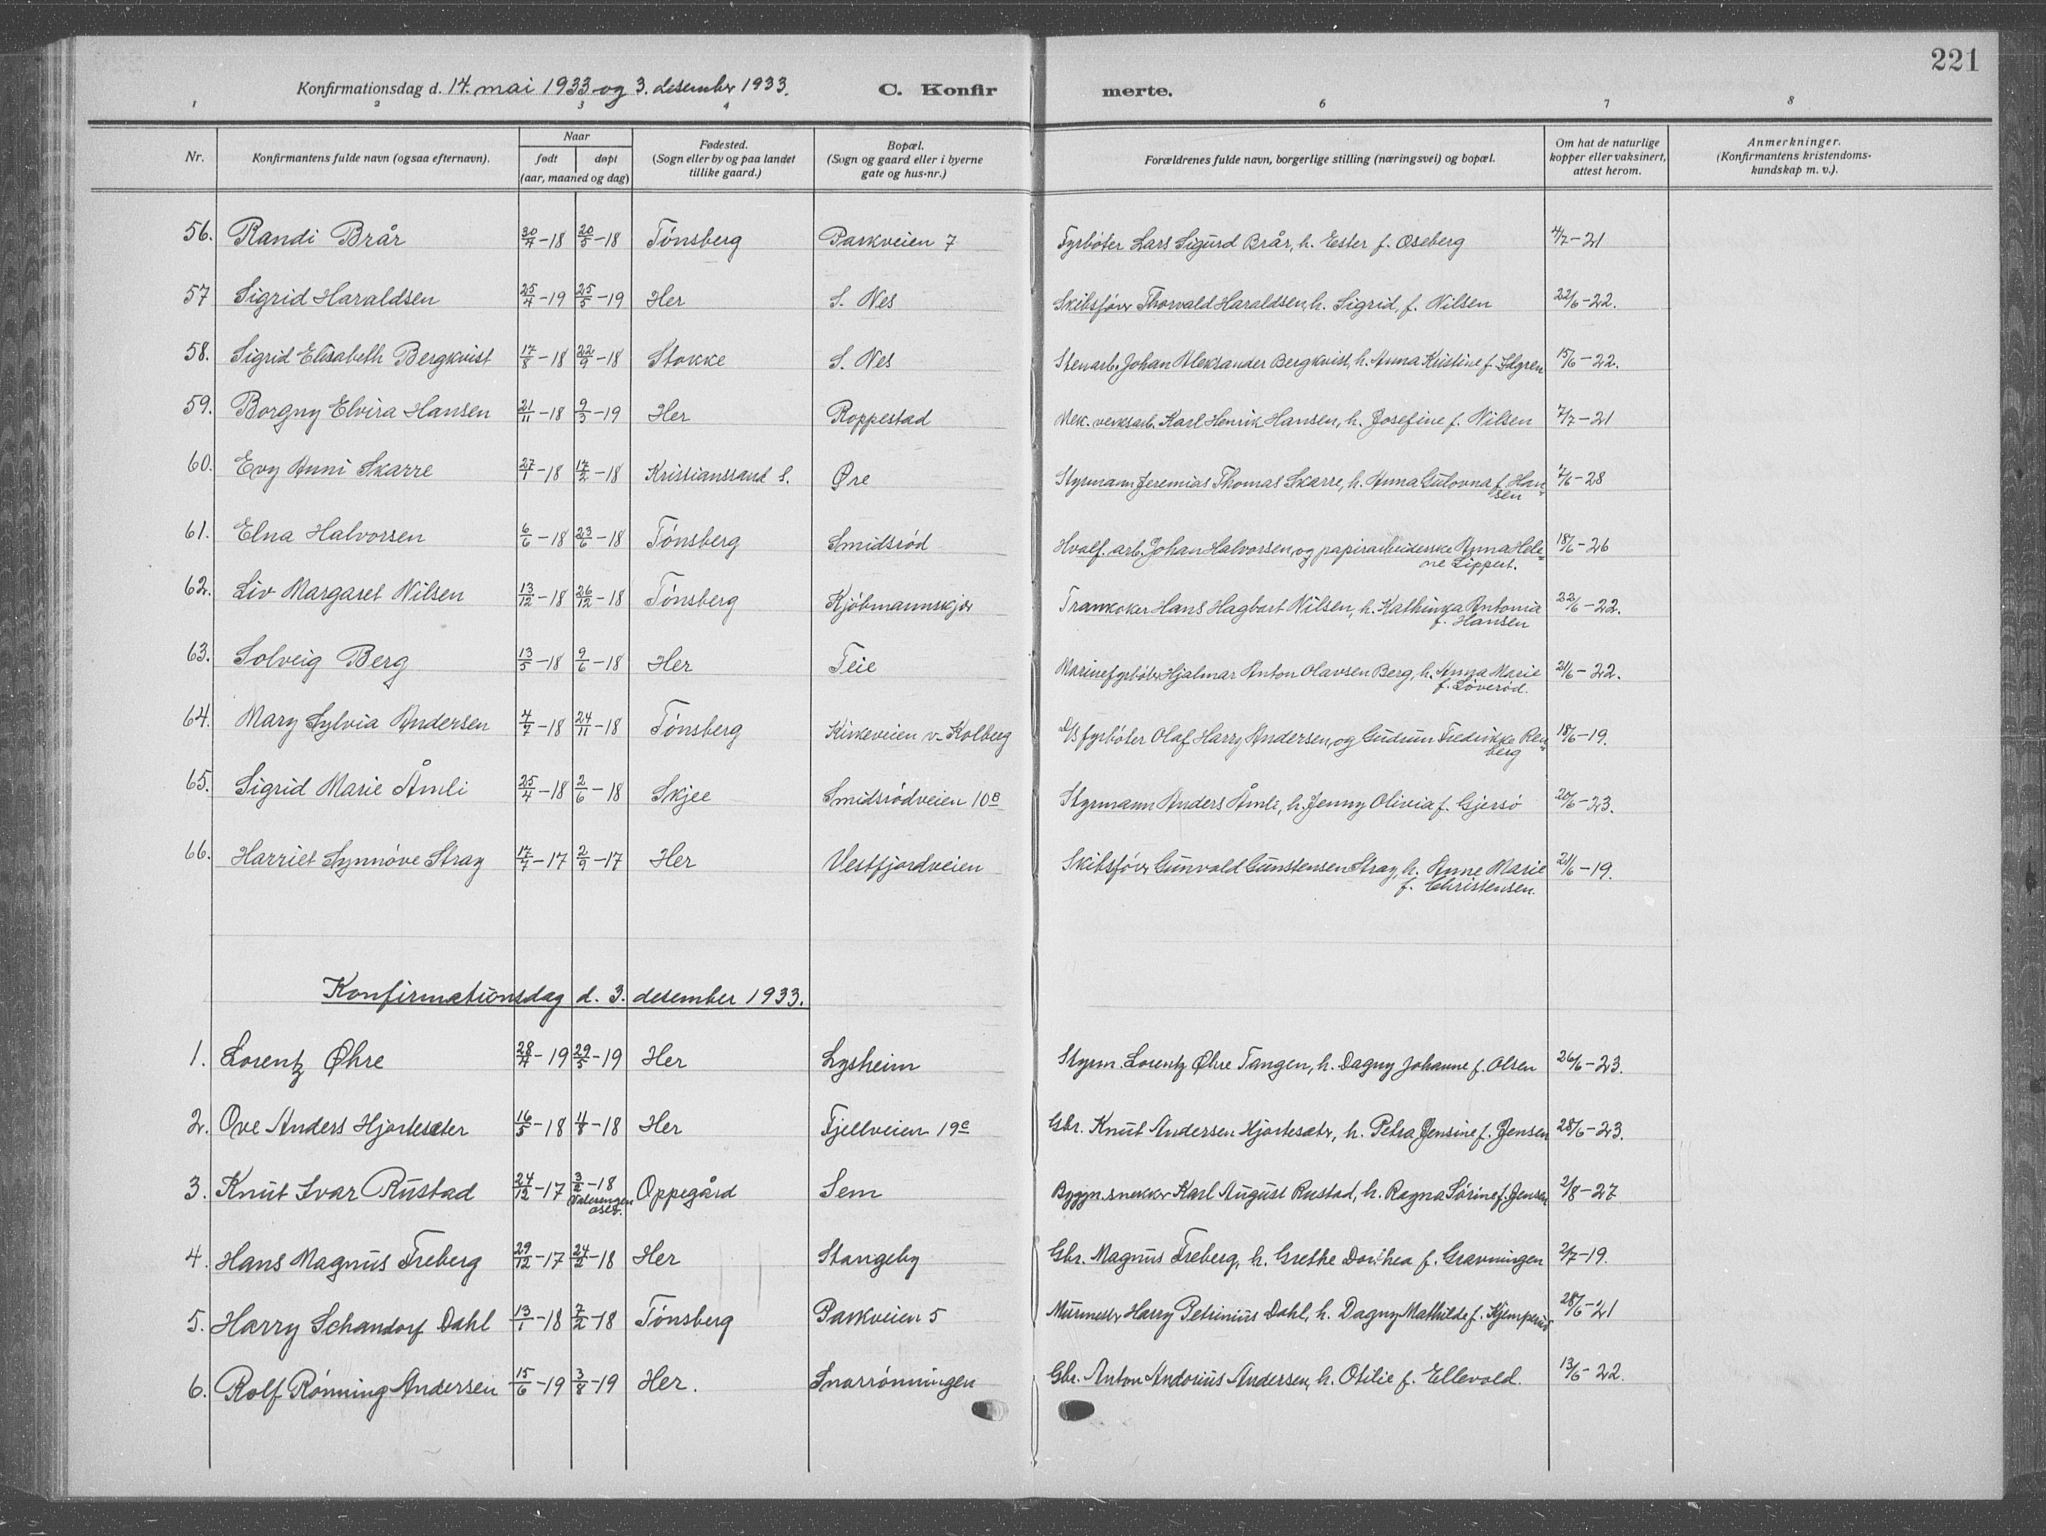 221
Konfirmationsdag d. 14. mai 1933 og 3. desember 1933. C. Konfirmerte.
1 2 3 4 6 7 8
Nr. Konfirmantens fulde navn (ogsaa efternavn). Naar født døpt (aar, maaned og dag) Fødested. (Sogn eller by og paa landet tillike gaard.) Bopæl. (Sogn og gaard eller i byerne gate og hus-nr.) Forældrenes fulde navn, borgerlige stilling (næringsvei) og bopæl. Om hat de naturlige kopper eller vaksinert, attest herom. Anmerkninger. (Konfirmantens kristendomskundskap m. v.).
56. Randi Brår 30/4-18 20/5-18 Tønsberg Parkveien 7 Fyrbøter Lars Sigurd Brår, h. Ester f. Oseberg 4/7-21
57 Sigrid Haraldsen 25/4-19 25/5-19 Her S. Nes Skibsfør Thorvald Haraldsen, h. Sigrid, f. Nilsen 22/6-22.
58. Sigrid Elisabeth Bergkvist 17/8-18 22/9-18 Stokke S. Nes Stenarb. Johan Aleksander Bergkvist, h. Anna Kristine f. Idgren 15/6-22.
59. Borgny Elvira Hansen 21/11-18 9/3-19 Her Roppestad Mek. verksarb. Karl Henrik Hansen, h. Josefine f. Nilsen 7/7-21
60. Evy Anni Skarre 27/1-18 17/2-18 Kristianssand S. Øre Styrmann Jeremias Thomas Skarre, h. Anna Gulovna f. Han-
sen 7/6-28
61. Elna Halvorsen 6/6-18 23/6-18 Tønsberg Smidsrød Hvalf. arb. Johan Halvorsen, og papirarbeiderske Anna Hele-
ne Lippert. 18/6-26
62. Liv Margaret Nilsen 13/12-18 26/12-18 Tønsberg Kjøbmannskjær Trankoker Hans Hagbart Nilsen, h. Kathinka Antonia
f. Hansen 22/6-22.
63. Solveig Berg 13/5-18 9/6-18 Her Teie Marinefyrbøter Hjalmar Anton Olavsen Berg, h. Anna Marie
f. Løverød. 21/6-22.
64. Mary Sylvia Andersen 4/7-18 24/11-18 Tønsberg Kirkeveien v. Kolberg D/S fyrbøter Olaf Harry Andersen, og Gudrun Fredrikke Ren-
berg 18/6-19.
65. Sigrid Marie Åmli 25/4-18 2/6-18 Skjee Smidsrødveien 10B Styrmann Anders Åmli, h. Jenny Olivia f. Gjersø 20/6-23.
66. Harriet Synnøve Stray 17/7-17 2/9-17 Her Vestfjordveien Skibsfør Gunvald Gunstensen Stray, h. Anne Marie
f. Christensen. 21/6-19.
Konfirmationsdag d. 3. desember 1933.
1. Lorentz Øhre 28/4-19 29/5-19 Her Lysheim Styrm. Lorentz Øhre Tangen, h. Dagny Johanne f. Olsen 26/6-23.
2. Ove Anders Hjortesæter 16/5-18 4/8-18 Her Fjellveien 19c Gbr. Knut Andersen Hjortesæter, h. Petra Jensine f. Jensen 28/6-23.
3. Knut Ivar Rustad 24/12-17 3/2-18 Oppegård Sem Byggn. snekker Karl August Rustad, h. Ragna Sørine f. Jensen 2/8-27
4. Hans Magnus Freberg 29/12-17 24/2-18 Her Stangeby Gbr. Magnus Freberg, h. Grethe Dorthea f. Gravningen 2/7-19.
5. Harry Schandorf Dahl 13/1-18 7/2-18 Tønsberg Parkveien 5 Murmester Harry Petrinius Dahl, h. Dagny Mathilde f. 28/6-21
6. Rolf Rønning Andersen 15/6-19 3/8-19 Her. Snarrønningen Gbr. Anton Andorius Andersen, h. Otilie f. Ellevold. 13/6-22.